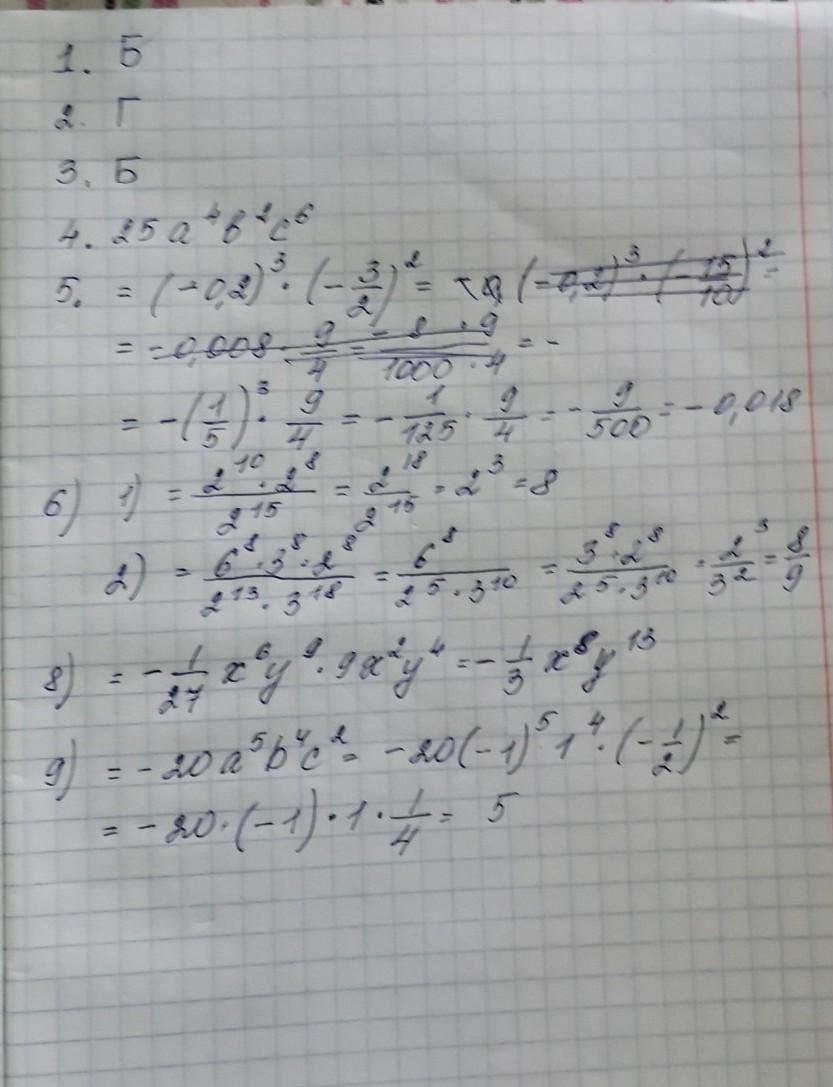 1. Б
2. Г
3. Б
4. 25a⁴b²c⁶
5. = (-0,2)³ · (-3/2)² = (-0,2)³ · (-15/10)² =
= -0,008 · 9/4 = -8 · 9/1000 · 4 = -
= -(1/5)³ · 9/4 = -1/125 · 9/4 = -9/500 = -0,018
6) 1) = 2¹⁰ · 2⁸/2¹⁵ = 2¹⁸/2¹⁵ = 2³ = 8
2) = 6⁸ · 3⁸ · 2⁸/2¹³ · 3¹⁸ = 6⁸/2⁵ · 3¹⁰ = 3⁸ · 2⁸/2⁵ · 3¹⁰ = 2³/3² = 8/9
8) = -1/27 x⁶y⁹ · 9x²y⁴ = -1/3 x⁸y¹³
9) = -20a⁵b⁴c² = -20(-1)⁵ 1⁴ · (-1/2)² =
= -20 · (-1) · 1 · 1/4 = 5